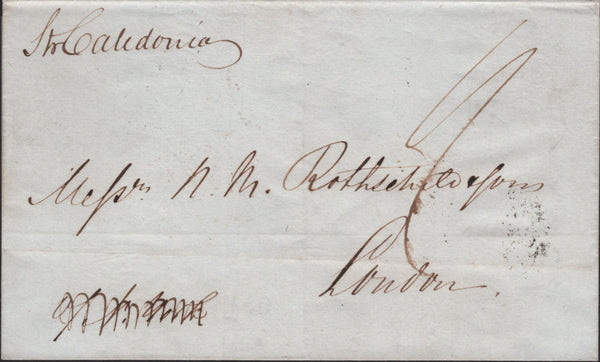 Str Caledonia
Messrs N. M. Rothschild & Sons
London